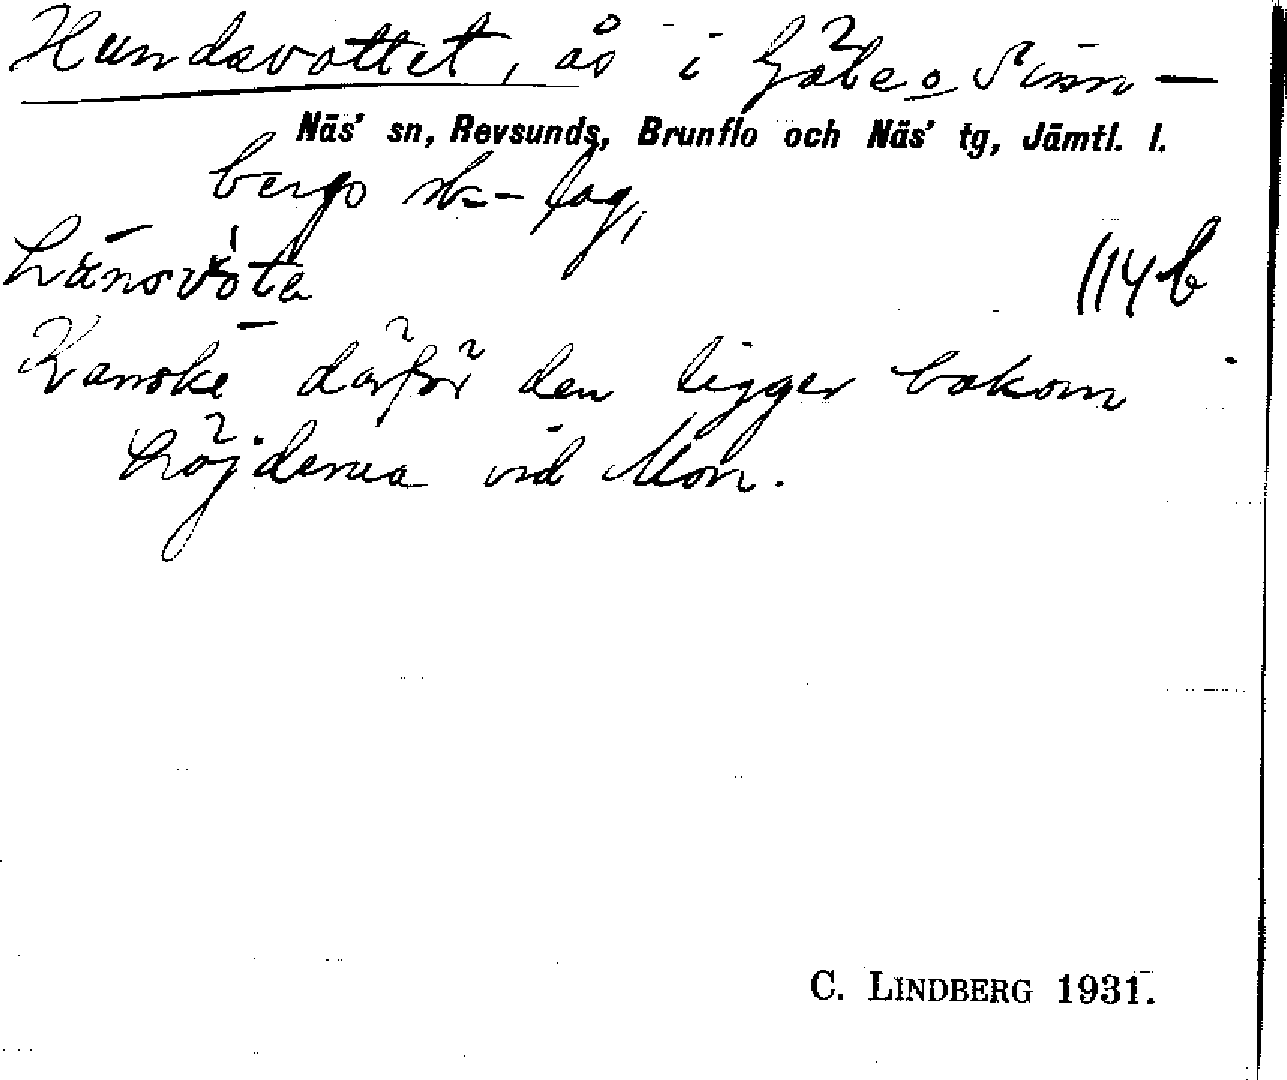 Hundsvottet, ås i Gåle o Sinn-
Näs' sn, Revsunds, Brunflo och Näs' tg, Jämtl. l.
bergs sk-lag,
114 b
Kanske därför den ligger bakom
höjderna vid Mon.
C. LINDBERG 1931.